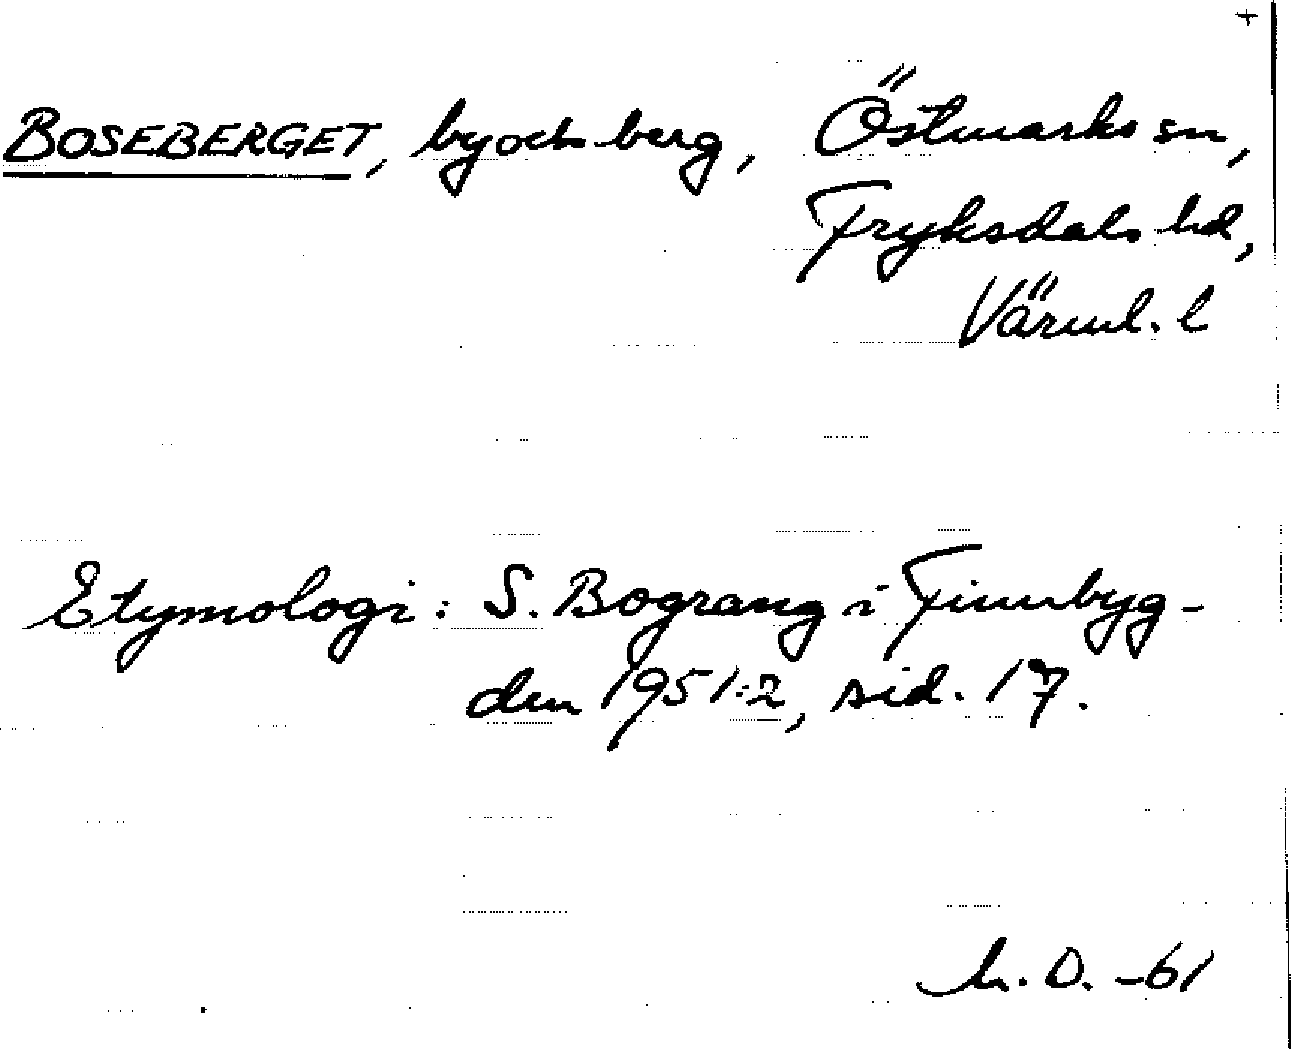 +
BOSEBERGET, by och berg, Östmarks sn,
Fryksdals hd,
Värml. l
Etymologi: S. Bograng i Finnbyg-
den 1951:2, sid. 17.
D. -61